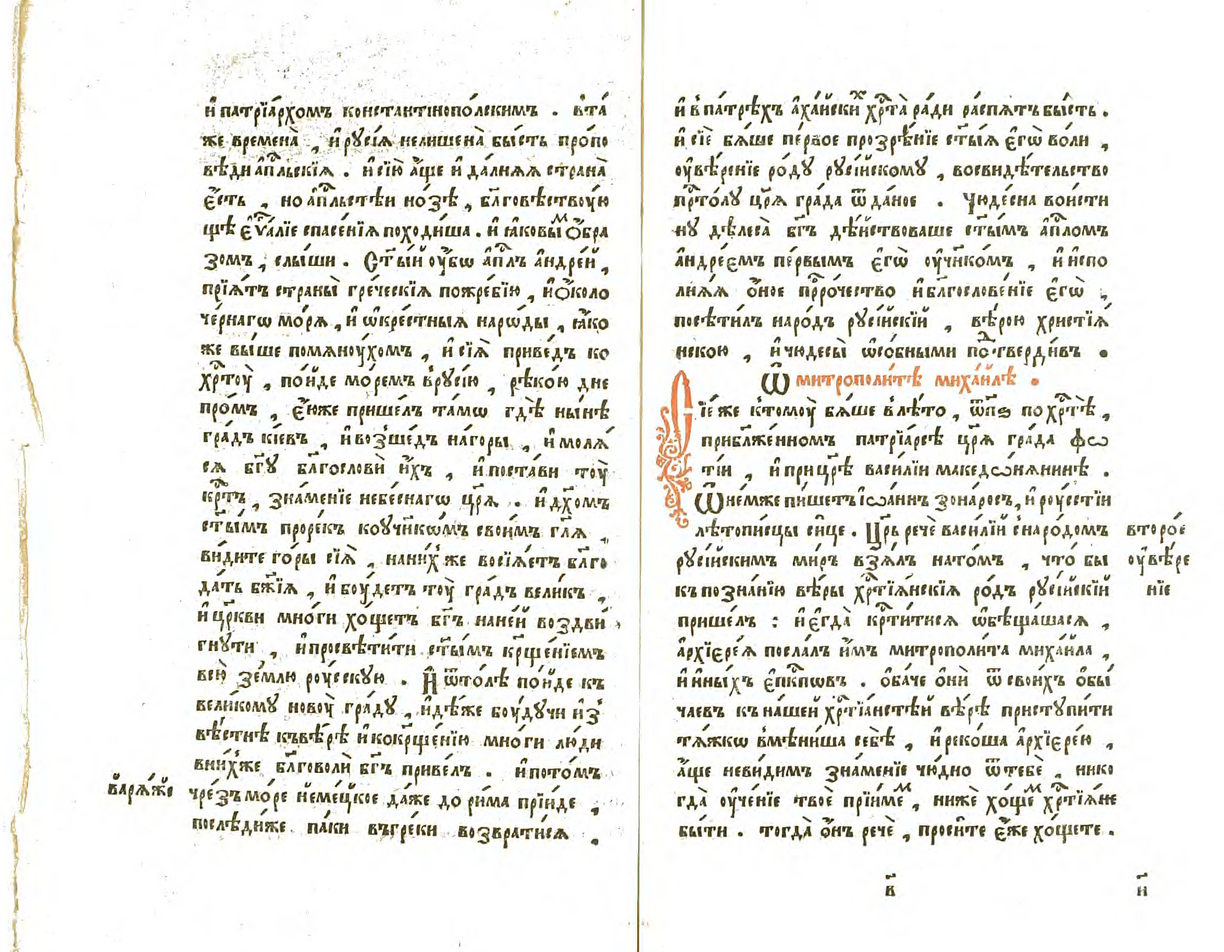 и҆ патрїа́рхомъ константїнопо́лскимъ . в̾та́
же времена̀ , и҆ рꙋсі́ѧ нелишена̀ бы́сть пропо
вѣ́ди а҆пⷭ҇льскїѧ . и҆ сїю̀ а҆́ще и҆ да́лнѧѧ страна̀
є҆́сть , но а҆пⷭ҇льстѣ́и но́зѣ , бл҃говѣ́ствоую
щѐ є҆ѵⷢ҇а́лїе спасе́нїѧ походи́ша . и҆ ꙗ҆ковы́ⷨ ѻ҆́бра
зомъ , слы́ши . Ст҃ы́й оу҆̀бѡ а҆пⷭ҇лъ а҆ндре́й ,
прїѧ́тъ страны̀ гре́ческїѧ по жре́бїю , и҆ ѻ҆́коло
че́рнагѡ мо́рѧ , и҆ ѡ҆кре́стныѧ наро́ды , ꙗ҆́ко
же вы́ше помѧноу́хомъ , и҆ сїѧ̀ приве́дъ ко
хрⷭ҇тоу̀ , по́йде мо́ремъ в̾рꙋсі́ю , рѣко́ю дне
про́мъ , є҆́юже прише́лъ та́мѡ гдѣ̀ ны́нѣ
гра́дъ кі́евъ , и҆ возше́дъ на́горы , и҆ молѧ́
сѧ бг҃ꙋ бл҃гословѝ и҆́хъ , и҆ поста́ви тоу̀
крⷭ҇тъ , зна́менїе небе́снагѡ цр҃ѧ̀ . и҆ дх҃омъ
ст҃ы́мъ проре́къ коу҆чн҃кѡ́мъ свои́мъ гл҃ѧ ,
ви́дите го́ры сїѧ̀ , на ни́хже восїѧ́етъ бл҃го
да́ть бж҃їѧ , и҆ боу́детъ тоу̀ гра́дъ вели́къ ,
и҆ цр҃кви мно́ги хо́щетъ бг҃ъ на не́й воздви́
гнꙋти , и҆ просвѣти́ти ст҃ы́мъ крщ҃е́нїемъ
всю̀ зе́млю роу́сскꙋю . И҆ ѿто́лѣ по́йде къ
вели́комꙋ новоу̀ гра́дꙋ , и҆дѣ́же боу́дꙋчи и҆з̾
вѣ́стнѣ къ вѣ́рѣ и҆ ко крщ҃е́нїю мно́ги лю́ди
в̾ни́хже бл҃говолѝ бг҃ъ приве́лъ . и҆ пото́мъ
варѧ́жⷭ҇ко
чрез̾ мо́ре неме́цкое да́же до ри́ма прїи́де ,
послѣди́же па́ки въ гре́ки возврати́сѧ ,
и҆ в̾ патрѣ́хъ а҆ха́йскиⷯ хрⷭ҇та̀ ра́ди распѧ́тъ бы́сть .
и҆ сїѐ бѧ́ше пе́рвое прозрѣ́нїе ст҃ы́ѧ є҆гѡ̀ во́ли ,
оу҆вѣре́нїе ро́дꙋ рꙋсі́йскомꙋ , во свидѣ́тельство
прⷭ҇то́лꙋ цр҃ѧ̀ гра́да ѿда́ное . Чюдесна̀ вои́сти
нꙋ дѣлеса̀ бг҃ъ дѣ́йствоваше ст҃ы́мъ а҆пⷭ҇ломъ
а҆ндре́емъ пе́рвымъ є҆гѡ̀ оу҆чн҃ко́мъ , и҆ и҆спо
лнѧ́ѧ ѻ҆́ное прⷪ҇ро́чество и҆ бл҃гослове́нїе є҆гѡ̀ ,
посѣти́лъ наро́дъ рꙋсі́йскїй , вѣ́рою христїѧ́
нскою , и҆ чюдесы̀ ѡ҆со́бными подтверди́въ .
Ѡ҆ митрополи́тѣ миха́илѣ .
Сїе́ же к̾томоу̀ бѧ́ше в̾лѣ́то , ѿпѕ по хрⷭ҇тѣ̀ ,
при бл҃же́нномъ патрїа́рсѣ цр҃ѧ̀ гра́да фѡ́
тїи , и҆ при цр҃ѣ̀ васи́лїи македѡ́нѧнинѣ .
Ѡ҆ не́мже пи́шетъ і҆ѡа́ннъ зона́росъ , и҆ роу́сстїи
лѣтопи́сцы си́це . Цр҃ь речѐ васи́лїй с̾наро́домъ
второ́е
оу҆вѣ́ре
нїе
рꙋсі́йскимъ ми́ръ взѧ́лъ на то́мъ , что́ бы
къ позна́нїю вѣ́ры хрⷭ҇тїѧ́нскїѧ ро́дъ рꙋсі́йскїй
прише́лъ : и҆ є҆гда̀ крⷭ҇ти́тисѧ ѡ҆бѣща́шасѧ ,
а҆рхїере́ѧ посла́лъ и҆́мъ митрополи́та миха́ила ,
и҆ и҆ны́хъ є҆пⷭ҇кпѡвъ . ѻ҆ба́че ѻ҆нѝ ѿ свои́хъ ѻ҆бы́
чаевъ къ на́шей хрⷭ҇тїа́нстѣй вѣ́рѣ пристꙋпи́ти
тѧ́жкѡ в̾мѣни́ша себѣ̀ , и҆ реко́ша а҆рхїере́ю ,
а҆́ще неви́димъ зна́менїе чю́дно ѿ тебѐ , нико
гда̀ оу҆че́нїе твоѐ прїи́меⷨ , нижѐ хо́щеⷨ хрⷭ҇тїѧ́не
бы́ти . тогда̀ ѻ҆́нъ речѐ , проси́те є҆́же хо́щете .
в҃ и҃